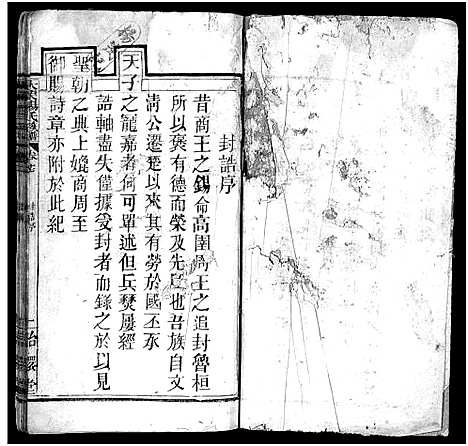 封誥序
昔商王之錫命高圉周王之追封魯桓
所以褒有德而榮及先世也吾族自文
清公遷楚以來其有勞於國丕承
天子之寵嘉者何可單述但兵燹屢經
誥軸盡失僅據受封者而錄之於以見
聖朝之典上媲商周至
御賜詩章亦附於此紀